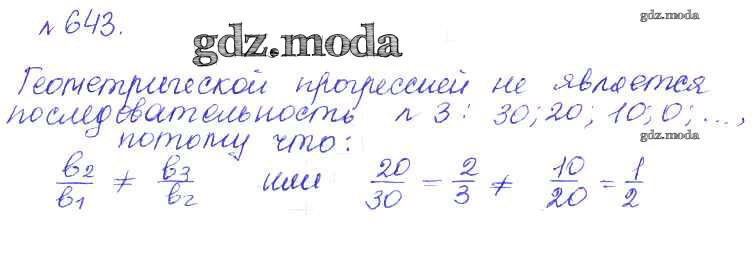 № 643.
gdz.moda
Геометрической прогрессией не является
gdz.moda
последовательность № 3 : 30; 20; 10; 0; ...,
потому что:
gdz.moda
b₂/b₁ ≠ b₃/b₂ или 20/30 = 2/3 ≠ 10/20 = 1/2